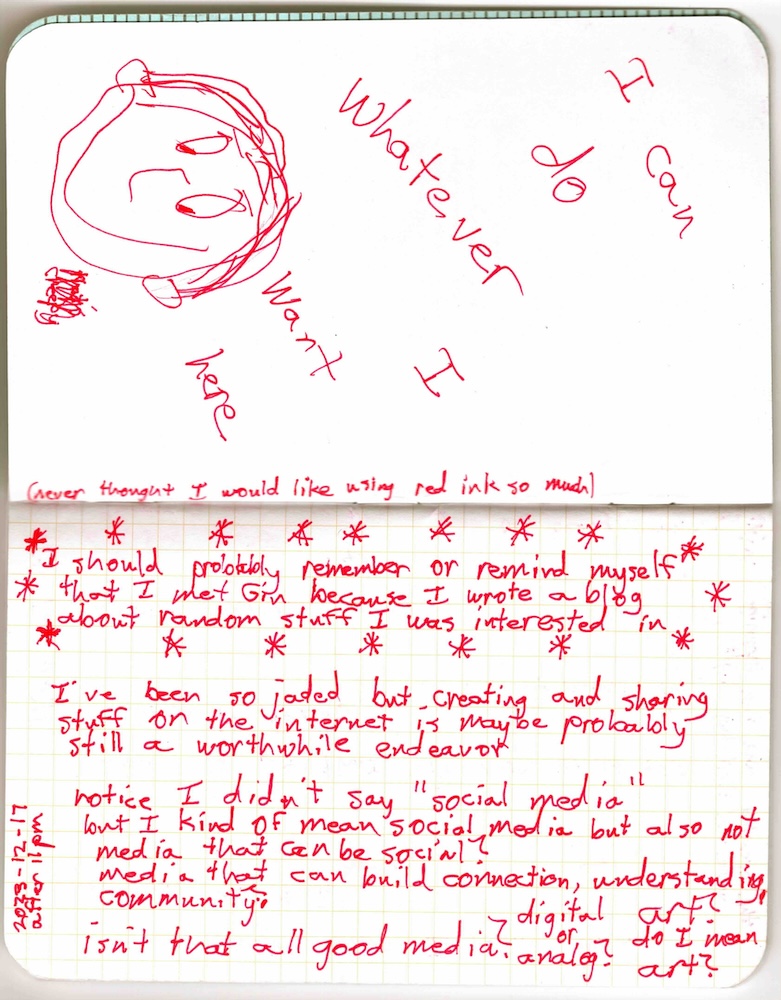 I
can
do
Whatever
I
Want
here
creepy
(never thought I would like using red ink so much)
I should probably remember or remind myself
that I met Gin because I wrote a blog
about random stuff I was interested in
I've been so jaded but creating and sharing
stuff on the internet is maybe probably
still a worthwhile endeavor
notice I didn't say "social media"
but I kind of mean social media but also not
media that can be social?
media that can build connection, understanding,
community?
isn't that all good media?
digital
or
analog?
art?
do I mean
art?
after 11pm